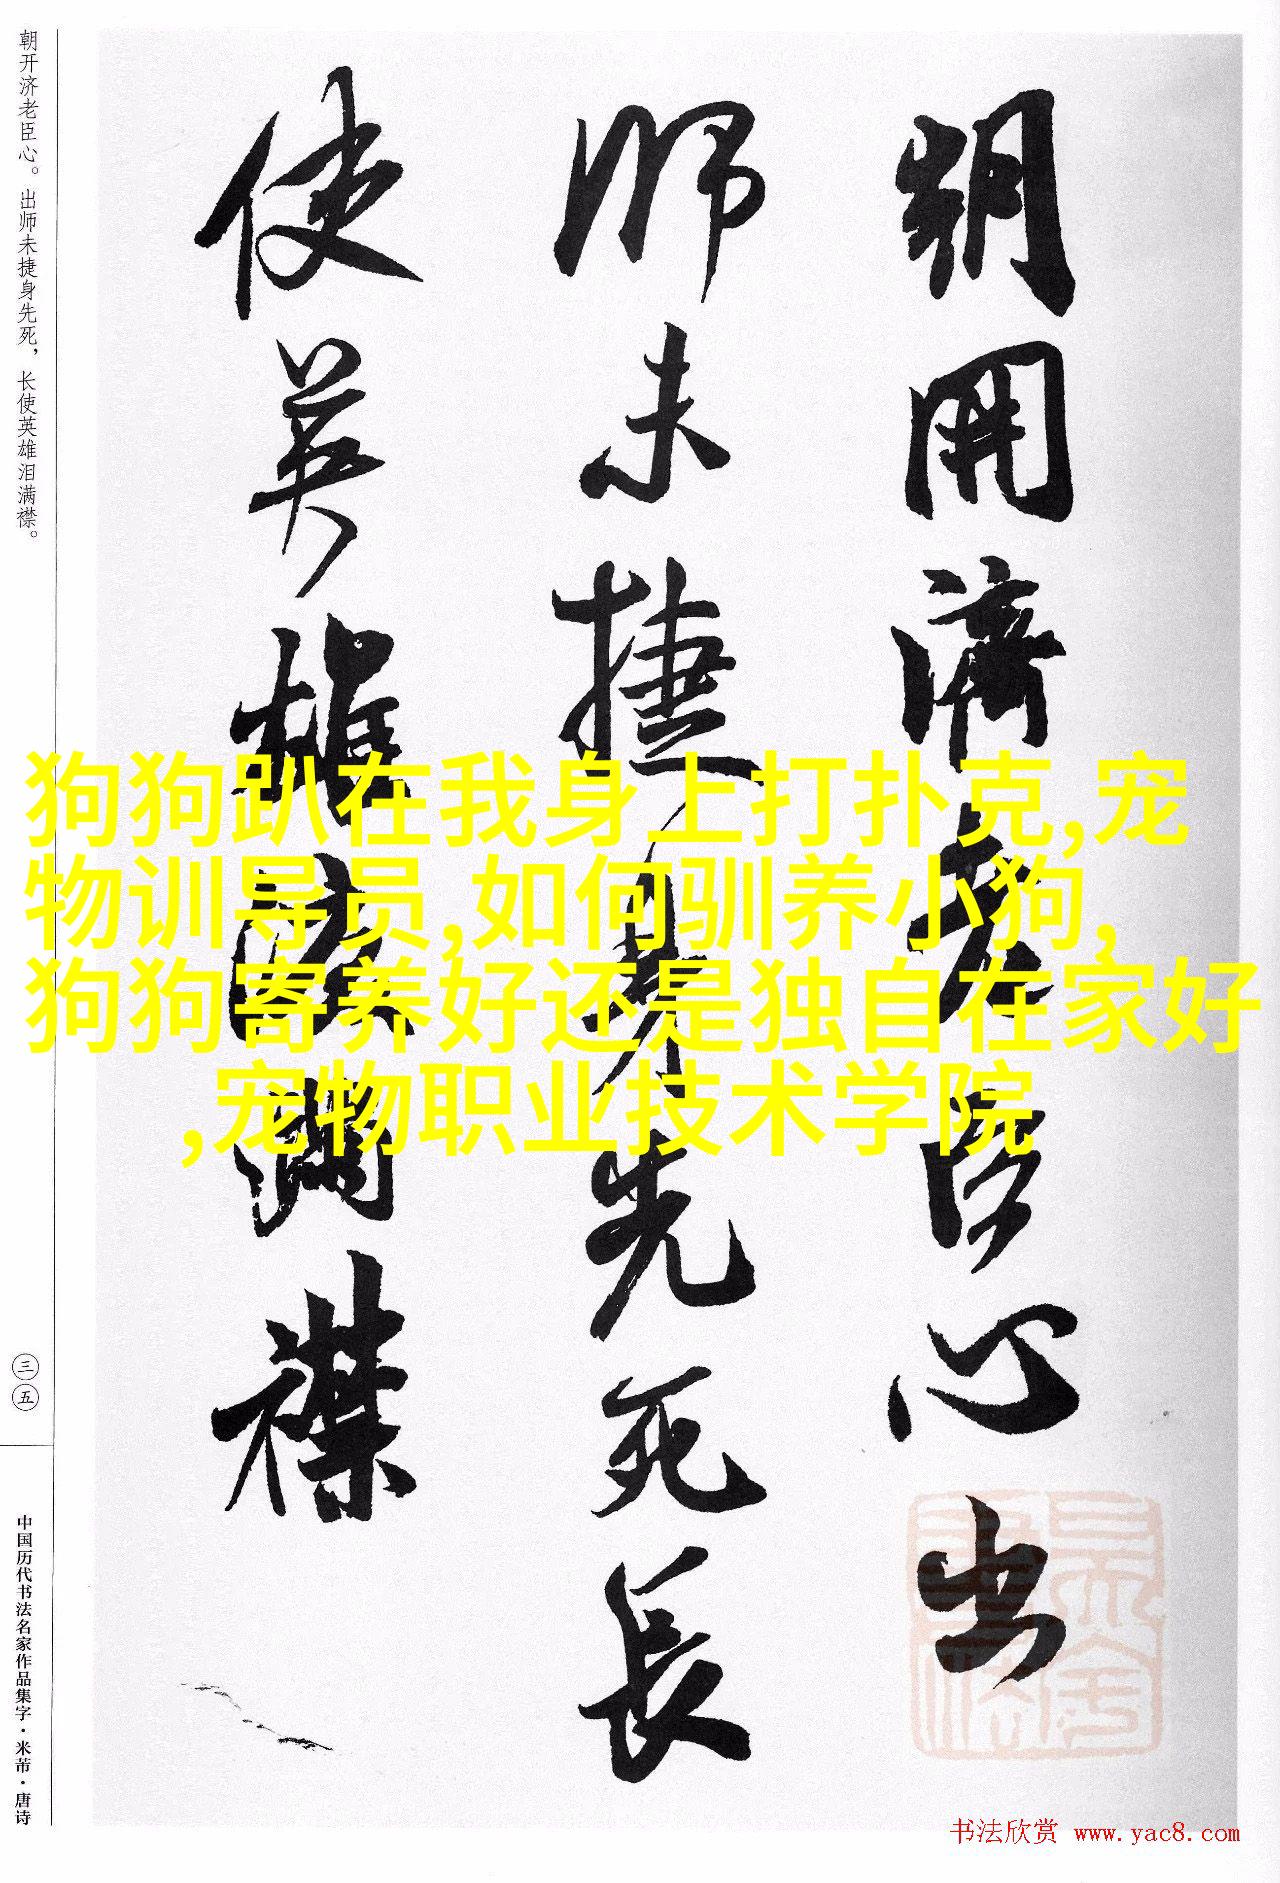 朝開濟老臣心出
師未捷身先死長
使英雄淚滿襟
朝开济老臣心。出师未捷身先死，长使英雄泪满襟。
三五
中国历代书法名家作品集字·米芾·唐诗
狗狗趴在我身上打扑克,宠
物训导员,如何驯养小狗,
狗狗寄养好还是独自在家好
,宠物职业技术学院
书法欣赏 www.yac8.com